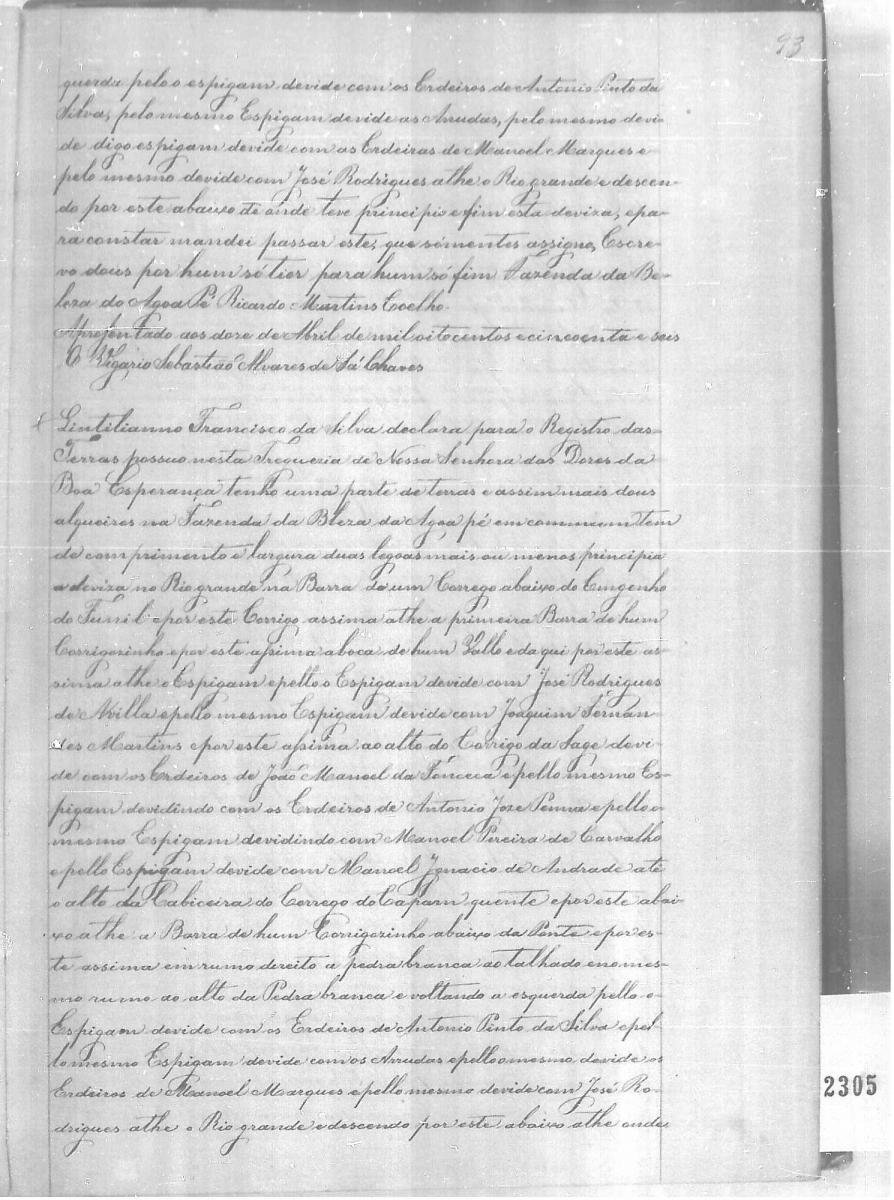 93
querda pelo o espigam devide com os Erdeiros de Antonio Pinto da
Silva, pelo mesmo Espigam devide as Arrudas, pelo mesmo devi-
de digo espigam devide com as Erdeiras de Manoel Marques e
pelo mesmo devide com José Rodrigues athe o Rio grande e descen-
do por este abaixo de onde teve principio e fim esta deviza, epa-
ra constar mandei passar este, que sómentes assigno, Escre-
vo dous por hum só tior para hum só fim Fazenda da Be-
leza do Agoa Pé Ricardo Martins Coelho.
Aprosentado aos doze de Abril de mil oitocentos ecincoenta e seis
O Vigario Sebastiaõ Alvares de Sá Chaves
Lintilianno Francisco da Silva declara para o Registro das
Terras possuo nesta Fregueria de Nossa Senhora das Dores da
Boa Esperança tenho uma parte de terras e assim mais dous
alqueires na Fazenda da Bleza da Agoa pé em commum tem
de comprimento e largura duas legoas mais ou menos principia
a deviza no Rio grande na Barra de um Corrego abaixo do Emgenho
do Funil epor este Corrigo assima athe a primeira Barra de hum
Corrigozinho epor este assima aboca de hum Vallo e da qui por este as-
sima athe o Espigam epello o Espigam devide com José Rodrigues
de Avilla epello mesmo Espigam devide com Joaquim Fernan-
des Martins epor este assima ao alto do Corrigo da Lage devi-
de com os Erdeiros de Joaõ Manoel da Fonceca epello mesmo Es-
pigam devidindo com os Erdeiros de Antonio Joze Penna epello o
mesmo Espigam devidindo com Manoel Pereira de Carvalho
epello Espigam devide com Manoel Ignacio de Andrade até
o alto da Cabiceira do Corrego do Capam quente epor este abai-
xo athe a Barra de hum Corrigozinho abaixo da Ponte epor es-
te assima em rumo direito a pedra branca ao talhado eno mes-
mo rumo ao alto da Pedra branca e voltando a esquerda pello o
Espigam devide com os Erdeiros de Antonio Pinto da Silva epel-
lo mesmo Espigam devide com os Arrudas epello o mesmo devide os
Erdeiros de Manoel Marques epello mesmo devide com José Ro-
drigues athe o Rio grande e descendo por este abaixo athe onde
2305